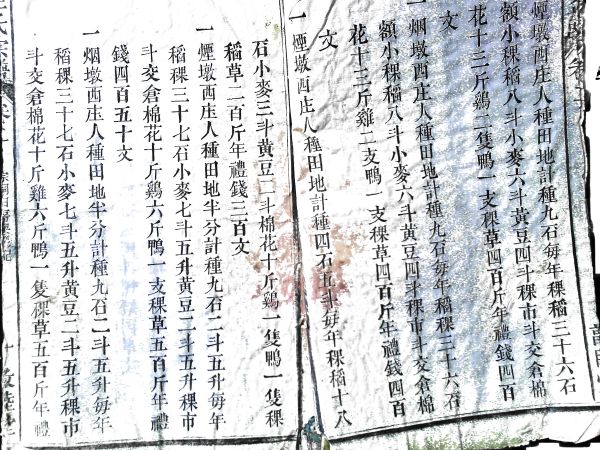 煙墩西庄人種田地計種九石每年稞稻三十六石
額小稞稻八斗小麥六斗黃豆四斗稞市斗交倉棉
花十三斤鷄二隻鴨一支稞草四百斤年禮錢四百
文
一烟墩西庄人種田地計種九石每年稻稞三十六石
額小稞稻八斗小麥六斗黃豆四斗稞市斗交倉棉
花十三斤雞二支鴨一支稞草四百斤年禮錢四百
文
一煙墩西庄人種田地計種四石五斗每年稞稻十八
石小麥三斗黃豆二斗棉花十斤鷄一隻鴨一隻稞
稻草二百斤年禮錢三百文
一煙墩西庄人種田地半分計種九石二斗五升每年
稻稞三十七石小麥七斗五升黃豆二斗五升稞市
斗交倉棉花十斤鷄六斤鴨一支稞草五百斤年禮
錢四百五十文
一烟墩西庄人種田地半分計種九石二斗五升每年
稻稞三十七石小麥七斗五升黃豆二斗五升稞市
斗交倉棉花十斤雞六斤鴨一隻稞草五百斤年禮
氏宗譜